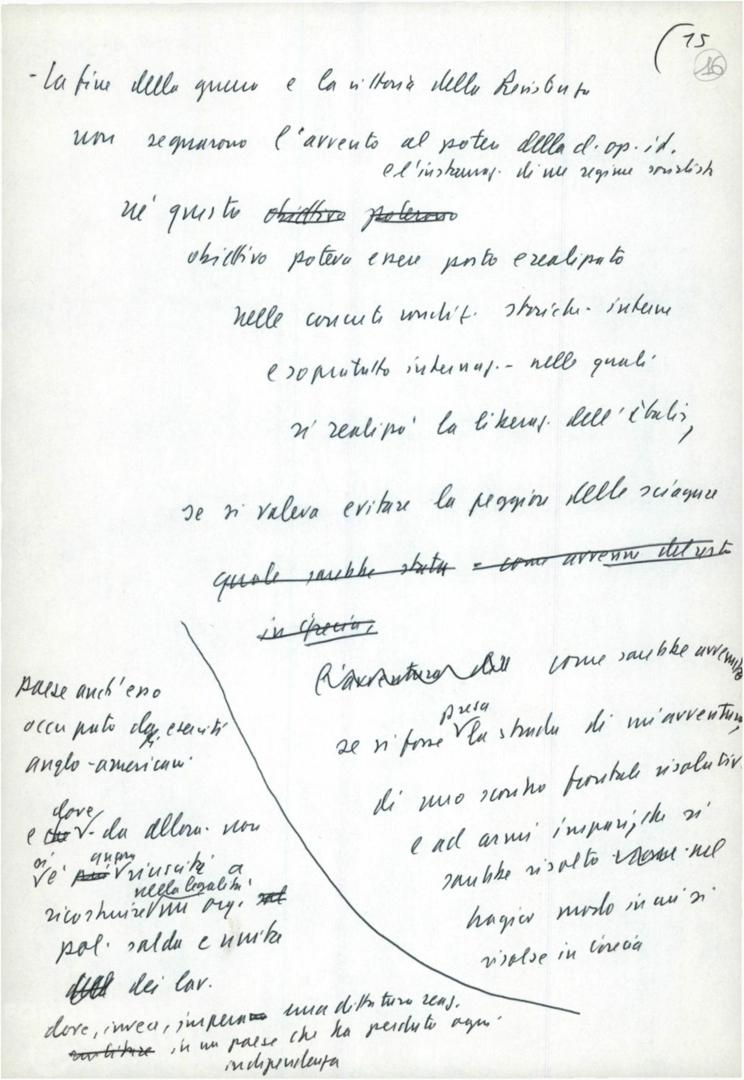 15
16
- La fine della guerra e la vittoria della Resistenza
non segnarono l'avvento al potere della cl. op. id.
e l'instauraz. di un regime socialista
né questo obiettivo potevano
obiettivo poteva essere posto e realizzato
nelle concrete condiz. storiche - interne
e sopratutto internaz. - nelle quali
si realizzò la liberaz. dell'Italia,
se si voleva evitare la peggiore delle sciagure
quale sarebbe stata - come avvenne del resto
in Grecia,
L'avventura dell come sarebbe avvenuto
se si fosse presa la strada di un'avventura,
di uno scontro frontale risolutivo
e ad armi impari, che si
sarebbe risolto nel
tragico modo in cui si
risolse in Grecia
paese anch'esso
occupato da eserciti
anglo-americani
e dove - da allora - non
si è ancora riusciti a
ricostruire nella legalità un org.
pol. salda e unita
dei lav.
dove, invece, impera una dittatura reaz.
militare in un paese che ha perduto ogni
indipendenza